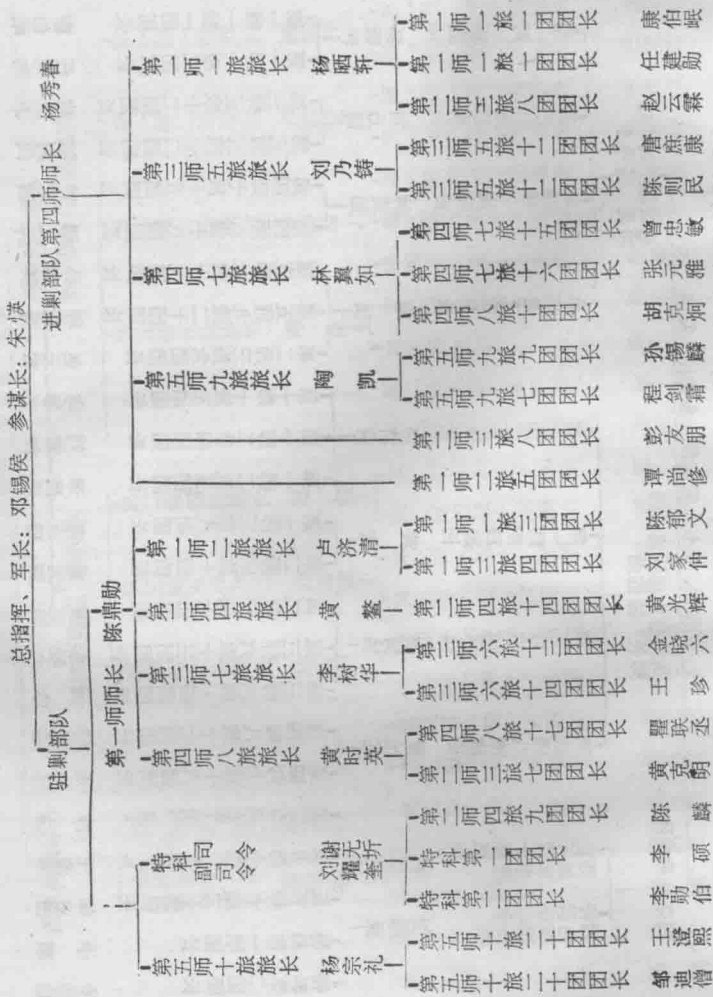 总指挥、军长：邓锡侯 参谋长：朱瑛
进剿部队第四师师长 杨秀春
第一师一旅旅长 杨晒轩
第一师一旅一团团长 康伯岷
第一师一旅七团团长 任建勋
第二师三旅八团团长 赵云霖
第三师五旅旅长 刘乃铸
第三师五旅十二团团长 唐庶康
第三师五旅十二团团长 陈则民
第四师七旅旅长 林翼如
第四师七旅十五团团长 曾忠敏
第四师七旅十六团团长 张元雅
第四师八旅十团团长 胡克洞
第五师九旅旅长 陶凯
第五师九旅九团团长 孙锡麟
第五师九旅七团团长 程剑霜
第一师三旅八团团长 彭友朋
第一师二旅五团团长 谭尚修
驻剿部队
第一师师长 陈鼎勋
第一师二旅旅长 卢济清
第一师一旅三团团长 陈郁文
第一师三旅四团团长 刘家仲
第二师四旅旅长 黄鳌
第二师四旅十四团团长 黄光辉
第三师七旅旅长 李树华
第三师六旅十三团团长 金晓六
第三师六旅十四团团长 王珍
第四师八旅旅长 黄时英
第四师八旅十七团团长 瞿联丞
第二师三旅七团团长 黄克明
特科司令 谢无圻
副司令 刘耀奎
第二师四旅九团团长 陈麟
特科第一团团长 李硕
特科第二团团长 李勋伯
第五师十旅旅长 杨宗礼
第五师十旅二十团团长 王澄熙
第五师十旅二十团团长 邹迪僧